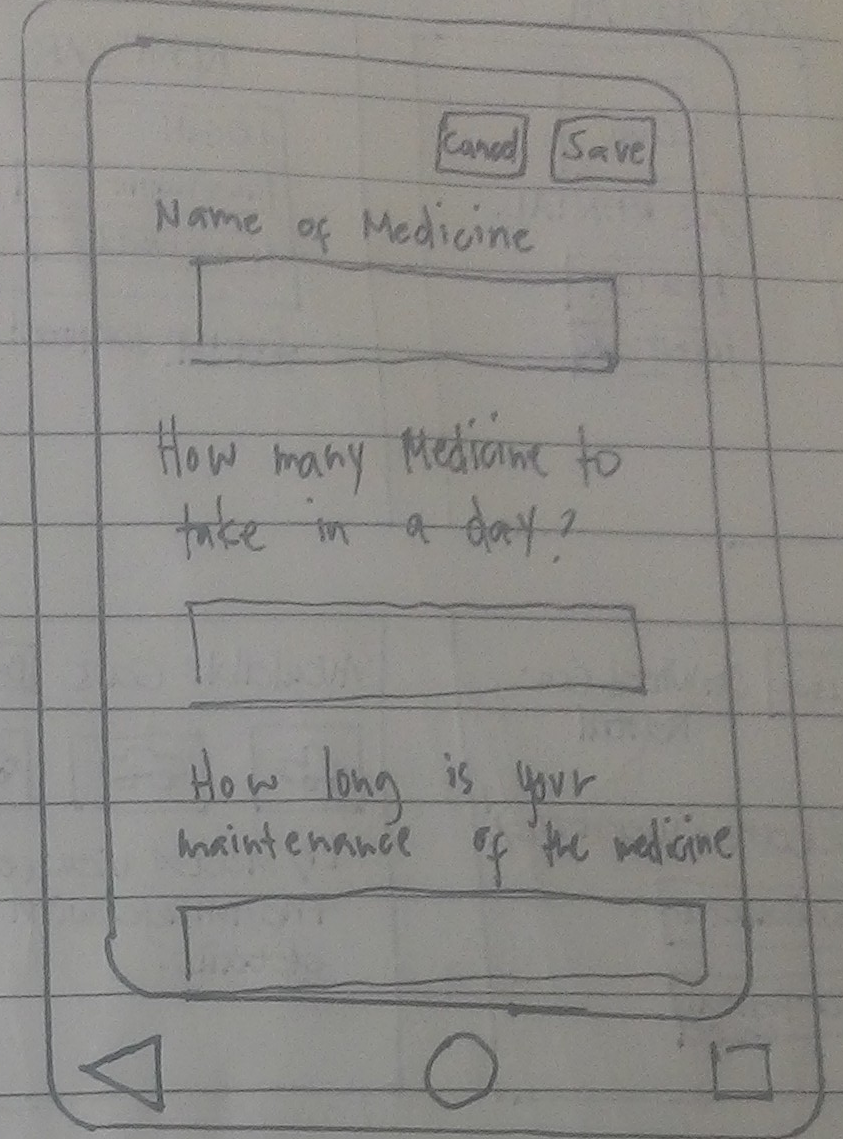 Cancel Save
Name of Medicine
How many Medicine to
take in a day?
How long is your
maintenance of the medicine